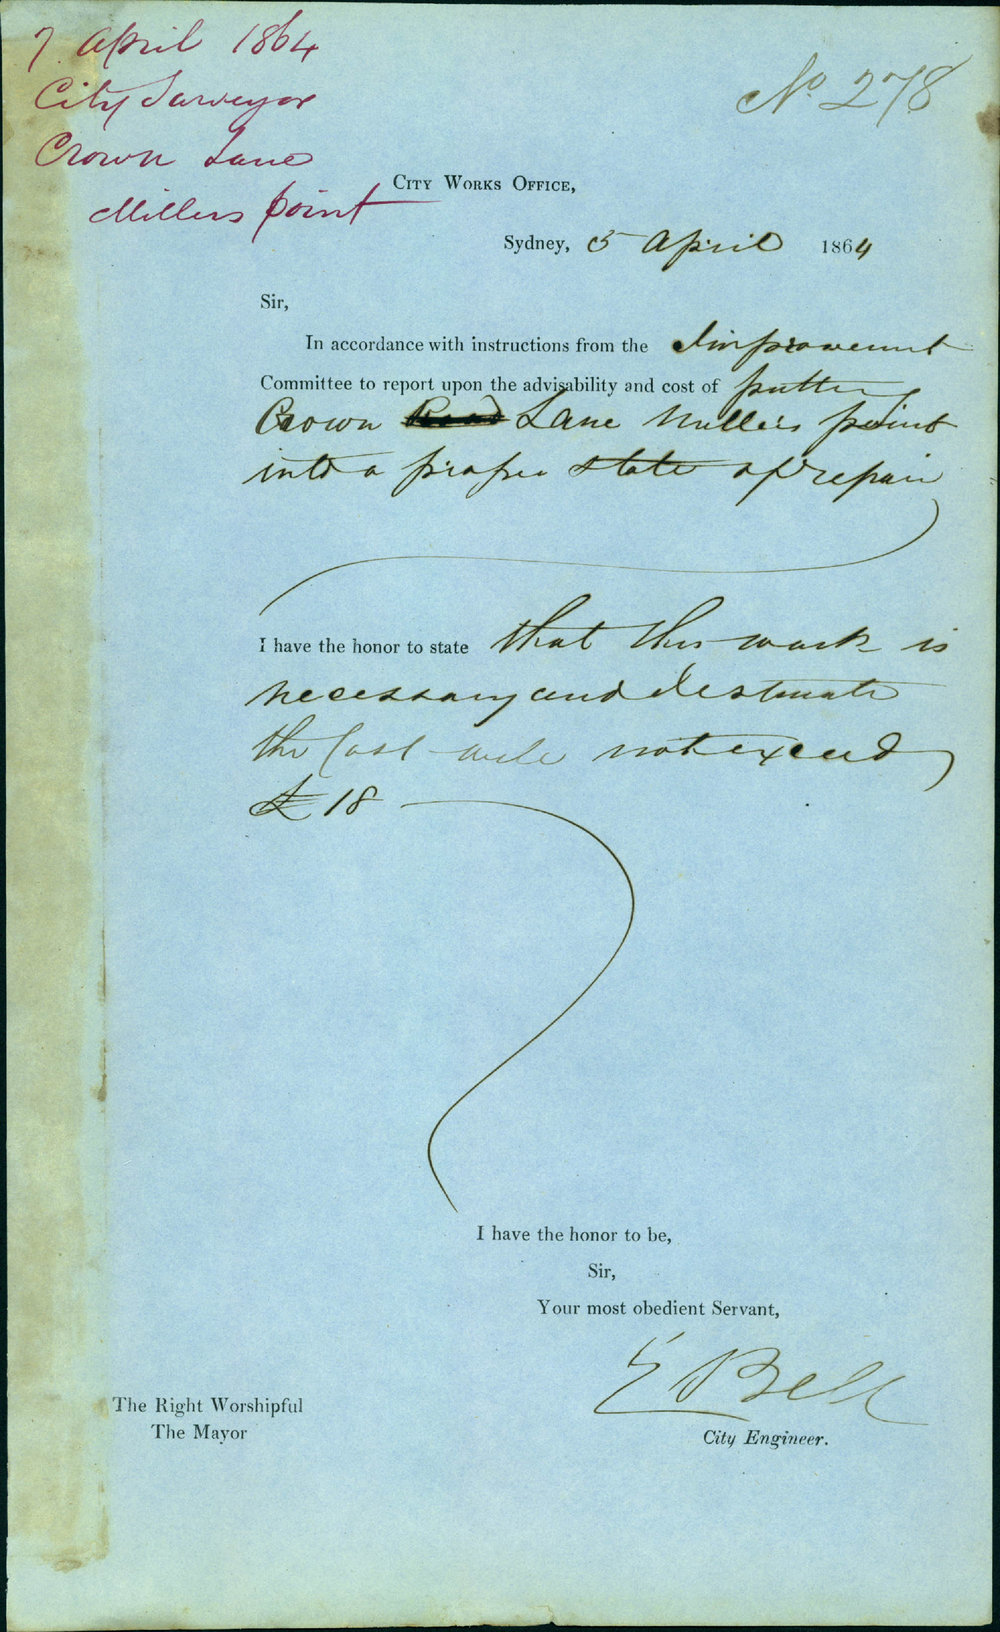 7 April 1864
City Surveyor
Crown Lane
Millers point
No 278
City Works Office,
Sydney, 5 April 1864
Sir,
In accordance with instructions from the Improvement
Committee to report upon the advisability and cost of putting
Crown Road Lane Millers point
into a proper state of repair
I have the honor to state that this work is
necessary and I estimate
the Cost will not exceed
£18
I have the honor to be,
Sir,
Your most obedient Servant,
E Bell
City Engineer.
The Right Worshipful
The Mayor